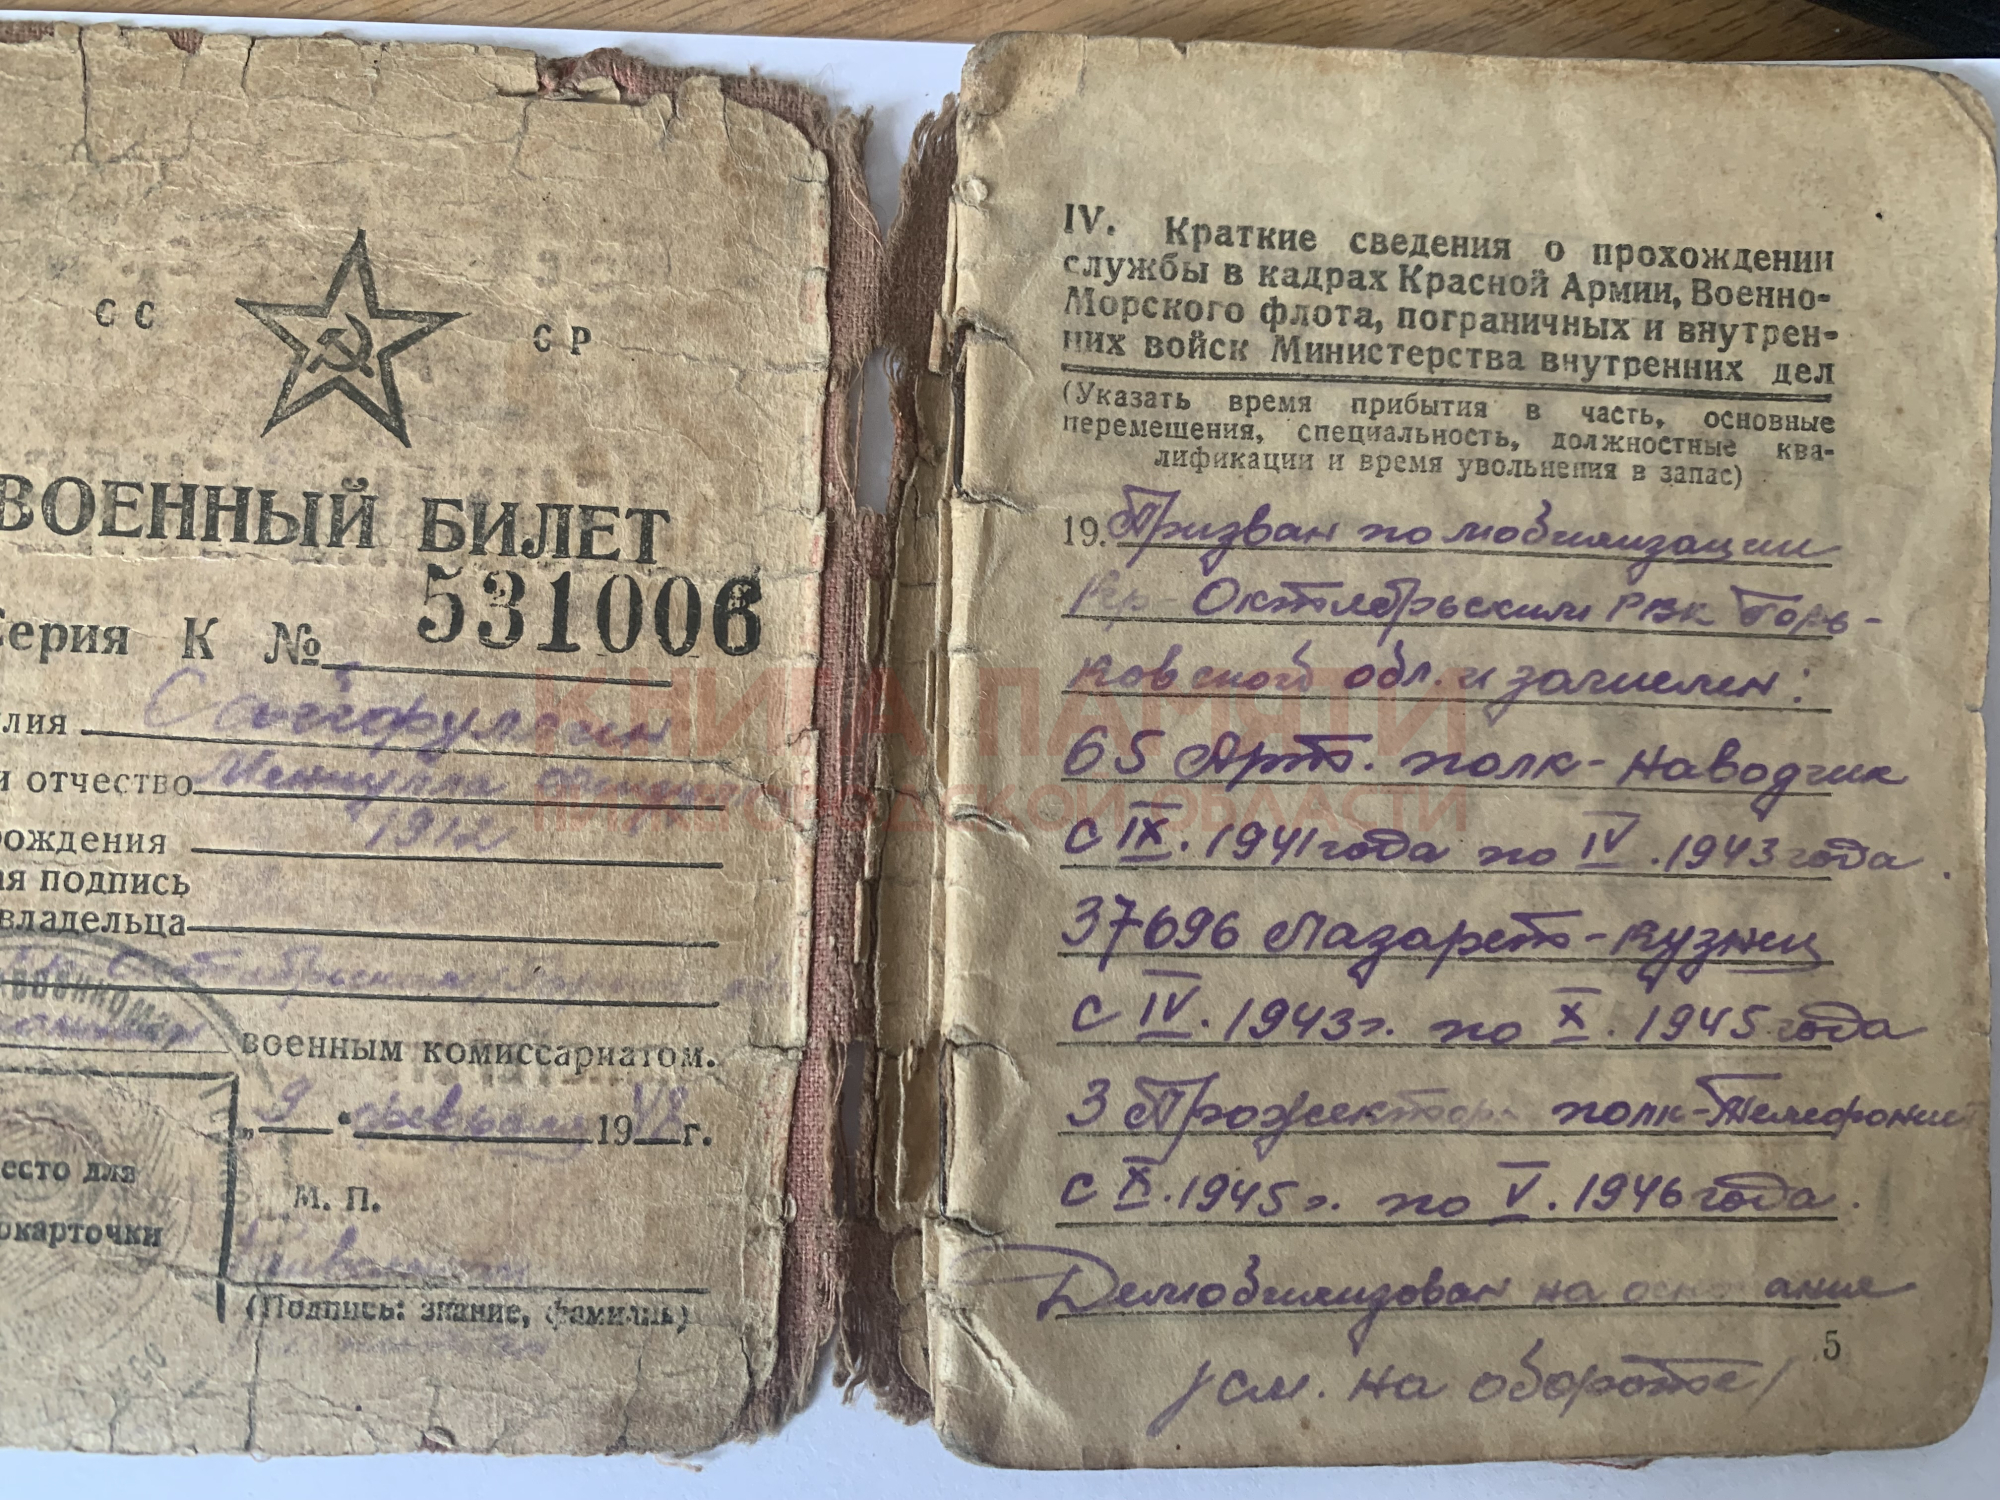 СС
СР
ВОЕННЫЙ БИЛЕТ
Серия К № 531006
лия Сайфуллин
и отчество
ождения 1912
ая подпись
владельца
военным комиссариатом.
„9" февраля 19 г.
есто для
М. П.
окарточки
(Подпись: звание, фамилия)
IV. Краткие сведения о прохождении
службы в кадрах Красной Армии, Военно-
Морского флота, пограничных и внутрен-
них войск Министерства внутренних дел
(Указать время прибытия в часть, основные
перемещения, специальность, должностные ква-
лификации и время увольнения в запас)
19. Призван по мобилизации
Кр-Октябрьским РВК Горь-
ковской обл. и зачислен:
65 Арт. полк - наводчик
с IX. 1941 года по IV. 1943 года.
37696 Лазарет - кузнец
с IV. 1943 г. по X. 1945 года
3 Прожекторн полк - Телефонист
с X. 1945 г. по V. 1946 года.
Демобилизован на основание
5
/см. на обороте/
КНИГА ПАМЯТИ
НИЖЕГОРОДСКОЙ ОБЛАСТИ